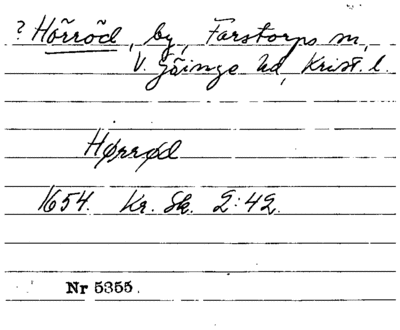 ? Hörröd, by, Farstorps sn,
V. Göinge hd, Krist. l.
Hørrød
1654. Kr. Sk. 2:42.
Nr 5355.